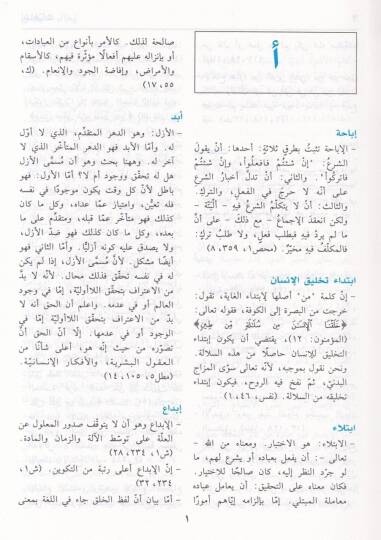 أ
إباحة
– الإباحة تثبتُ بطرقٍ ثلاثةٍ: أحدها: أنْ يقولَ
الشرعُ: "إنْ شئتُم فافعلُوا، وإنْ شئتُم
فاتركُوا". والثاني: أنْ تدلَّ أخبارُ الشرعِ
على أنّه لا حرجَ في الفعلِ، والتركِ.
والثالث: أنْ لا يتكلّمَ الشرعُ فيه – ألبتّةَ –
ولكن انعقدَ الإجماعُ – مع ذلك – على أنَّ
ما لم يرِدْ فيه طلبُ فعلٍ، ولا طلبُ تركٍ:
فالمكلَّفُ فيه مخيَّرٌ. (محص١، ٣٥٩، ٨)
ابتداء تخليق الإنسان
– إنّ كلمة "من" أصلها لابتداء الغاية، تقول:
خرجت من البصرة إلى الكوفة، فقوله تعالى:
﴿خَلَقْنَا ٱلْإِنسَٰنَ مِن سُلَٰلَةٍ مِّن طِينٍ﴾
(المؤمنون: ١٢)، يقتضي أن يكون إبتداء
التخليق للإنسان حاصلًا من هذه السلالة.
ونحن نقول بموجبه، لأنّه تعالى سوّى المزاج
البدنيّ، ثمّ نفخ فيه الروح، فيكون إبتداء
تخليقه من السلالة. (نفس، ٤٦، ١)
ابتلاء
– الابتلاء: هو الاختبار. ومعناه من الله –
تعالى –: أن يفعل بعباده أو يشرع لهم، ما
لو جرّد النظر إليه، كان صالحًا للاختبار.
فكان معناه على التحقيق: أن يعامل عباده
معاملة المبتلي. إمّا بإلزامه إيّاهم أمورًا
صالحة لذلك. كالأمر بأنواع من العبادات،
أو بإنزاله عليهم أفعالًا مؤثّرة فيهم، كالأسقام
والأمراض، وإفاضة الجود والإنعام. (ك،
٥٥، ١٧)
أبد
– الأزل: وهو الدهر المتقدّم، الذي لا أوّل
له. وأمّا الأبد فهو الدهر المتأخّر الذي لا
آخر له. وههنا بحث وهو أن مُسمَّى الأزل
هل له تحقّق ووجود أم لا؟ أمّا الأول: فهو
باطل لأنّ كل وقت يكون موجودًا في نفسه
فله تعيُّن، وامتياز عمّا عداه، وكل ما كان
كذلك فهو متأخّر عمّا قبله، ومتقدّم على ما
بعده، وكل ما كان كذلك، فهو ضدّ الأزل،
ولا يصدق عليه كونه أزليًّا. وأمّا الثاني فهو
أيضًا مشكل. لأنّ مُسمَّى الأزل، إذا لم يكن
له في نفسه تحقّق فذلك محال. لأنّه لا بدّ
من الاعتراف بتحقّق اللاأوليّة، إمّا في وجود
العالم أو في عدمه. واعلم أن الحق أنه لا
بدّ من الاعتراف بتحقّق اللاأوليّة إمّا في
الوجود أو في عدمها. إلّا أنّ الحق أنّ
تصوّره من حيث إنّه هو، أعلى شأنًا من
العقول البشرية، والأفكار الإنسانيّة.
(مطل٥، ١٠٥، ١٤)
إبداع
– الإبداع وهو أن لا يتوقّف صدور المعلول عن
العلّة على توسّط الآلة والزمان والمادة.
(ش١، ٢٣٤، ٢٨)
– إنّ الإبداع أعلى رتبة من التكوين. (ش١،
٢٣٤، ٣٢)
– أمّا بيان أنّ لفظ الخلق جاء في اللغة بمعنى
١